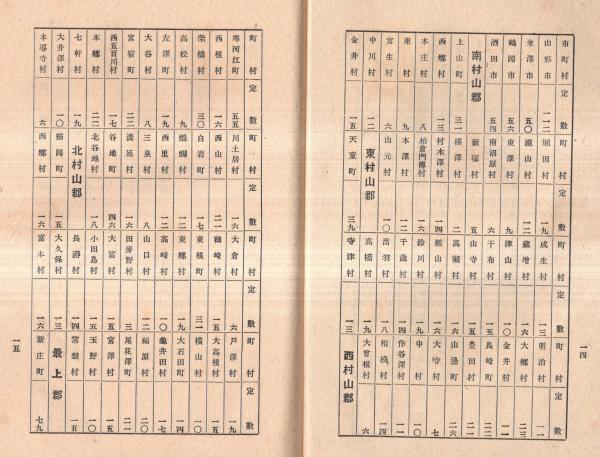 市町村 定數
山形市 一一二
米澤市 五〇
鶴岡市 五六
酒田市 五四
南村山郡
上山町 三一
西郷村 一三
本庄村 八
東村 九
宮生村 六
中川村 一二
金井村 一五
町村 定數
堀田村 一九
瀧山村 一二
東澤村 九
南沼原村 六
飯塚村 五
椹澤村 二
村木澤村 一四
柏倉門傳村 一六
本澤村 一二
山元村 一〇
東村山郡
天童町 三九
町村 定數
成生村 一三
藏增村 一六
津山村 一〇
干布村 一五
山寺村 一五
高瀬村
楯山村
鈴川村 一九
千歳村 一四
出羽村 一八
高擶村 一九
寺津村 一三
町村 定數
明治村 一一
大郷村 二三
金井村 二一
長崎町 二二
豊田村 二一
山邊町 二六
大寺村 七
中村 一〇
作谷澤村 一一
相模村 一四
大曾根村 六
西村山郡
一四
町村 定數
寒河江町 五五
西根村 一六
柴橋村 三〇
高松村 一九
左澤町 一九
大谷村 八
宮宿町 二二
西五百川村 一七
本郷村 二二
七軒村 一九
大井澤村 一〇
本導寺村 六
町村 定數
川土居村 一六
西山村 二一
白岩町 一七
醍醐村 一二
西里村 一二
三泉村 八
溝延村 一六
谷地町 四六
北谷地村 一八
北村山郡
楯岡町 一五
西郷村 一六
町村 定數
大倉村 六
袖崎村 一五
東根町 三一
東郷村 一九
高崎村 一〇
山口村 一二
田麥野村 三
大富村 一五
小田島村 一五
長瀞村 一四
大久保村 一三
富本村 一六
町村 定數
戸澤村 一九
大高根村 一五
横山村 一〇
大石田町 一四
龜井田村 一七
福原村 二〇
尾花澤町 二一
宮澤村 一一
玉野村 一〇
常盤村 一五
最上郡
新庄町 七九
一五